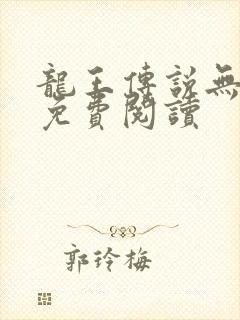 龍王傳說無
免費閱讀
郭玲梅